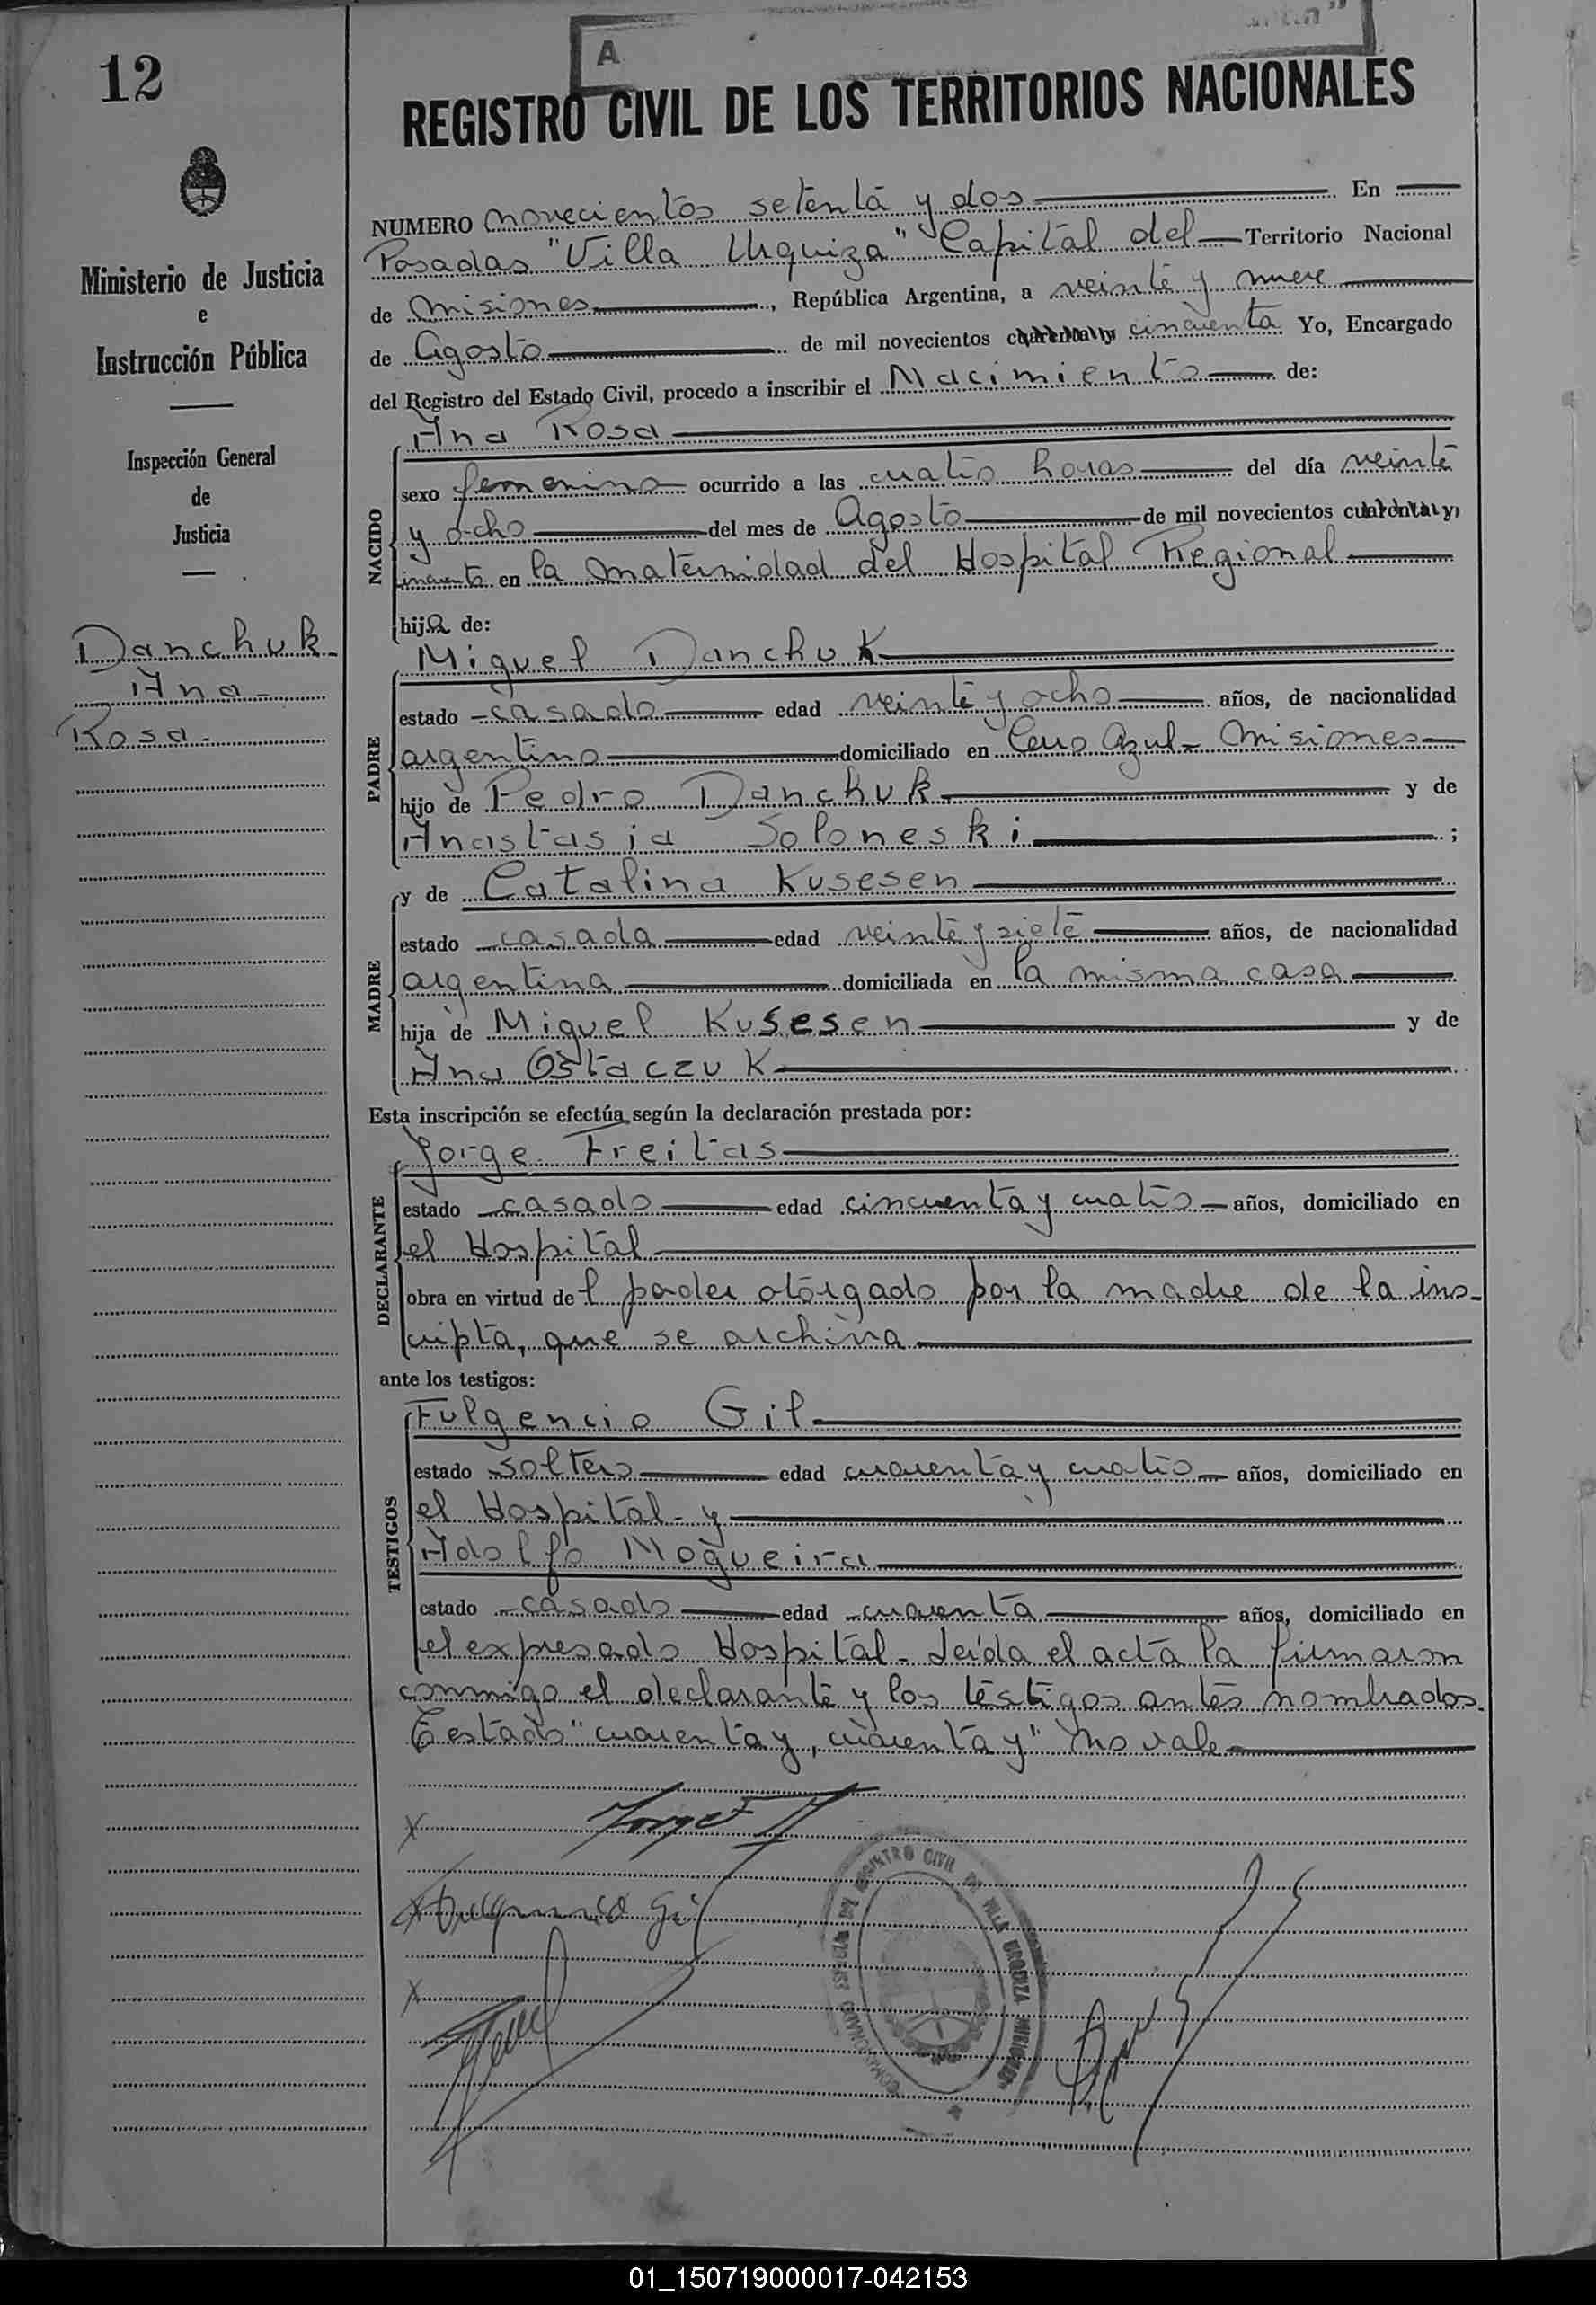 12
A
REGISTRO CIVIL DE LOS TERRITORIOS NACIONALES
Ministerio de Justicia
e
Instrucción Pública
Inspección General
de
Justicia
Danchuk
Ana
Rosa
NUMERO novecientos setenta y dos En
Posadas "Villa Urquiza" Capital del Territorio Nacional
de Misiones, República Argentina, a veinte y nueve
de Agosto de mil novecientos cuarenta y cincuenta Yo, Encargado
del Registro del Estado Civil, procedo a inscribir el Nacimiento de:
NACIDO
Ana Rosa
sexo femenino ocurrido a las cuatro horas del día veinte
y ocho del mes de Agosto de mil novecientos cuarenta y
cincuenta en la maternidad del Hospital Regional
hija de:
PADRE
Miguel Danchuk
estado casado edad veinte y ocho años, de nacionalidad
argentino domiciliado en Cerro Azul - Misiones
hijo de Pedro Danchuk y de
Anastasia Soloneski ;
MADRE
y de Catalina Kusesen
estado casada edad veinte y siete años, de nacionalidad
argentina domiciliada en la misma casa
hija de Miguel Kusesen y de
Ana Ostaczuk
Esta inscripción se efectúa según la declaración prestada por:
DECLARANTE
Jorge Freitas
estado casado edad cincuenta y cuatro años, domiciliado en
el Hospital
obra en virtud del poder otorgado por la madre de la ins-
cripta, que se archiva
ante los testigos:
TESTIGOS
Fulgencio Gil
estado soltero edad cuarenta y cuatro años, domiciliado en
el Hospital - y
Adolfo Nogueira
estado casado edad cuarenta años, domiciliado en
el expresado Hospital - Leída el acta la firmaron
conmigo el declarante y los testigos antes nombrados.
Testado "cuarenta y, cuarenta y" no vale
x Jorge F
x Fulgencio Gil
x
REGISTRO CIVIL DE VILLA URQUIZA MISIONES
01_150719000017-042153